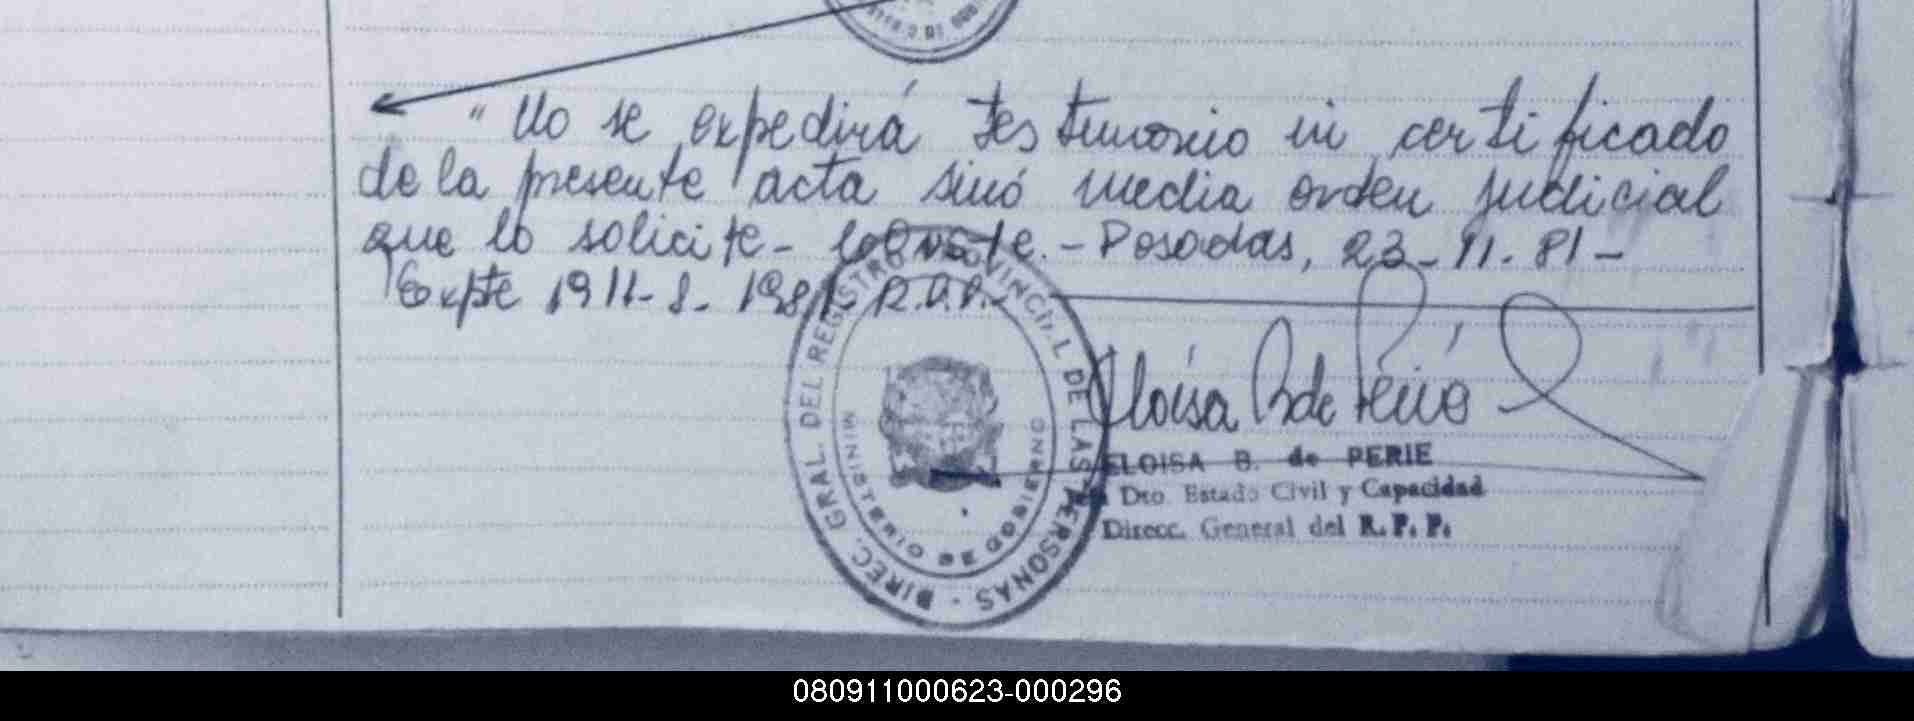 "No se expedirá testimonio ni certificado
de la presente acta sinó media orden judicial
que lo solicite - Conste. - Posadas, 23-11-81-
Expte 1911-S-1981 R.P.P.
Eloisa B de Perié
ELOISA B. de PERIE
Dto. Estado Civil y Capacidad
Direcc. General del R. P. P.
DIREC. GRAL. DEL REGISTRO PROVINCIAL DE LAS PERSONAS -
MINISTERIO DE GOBIERNO
080911000623-000296